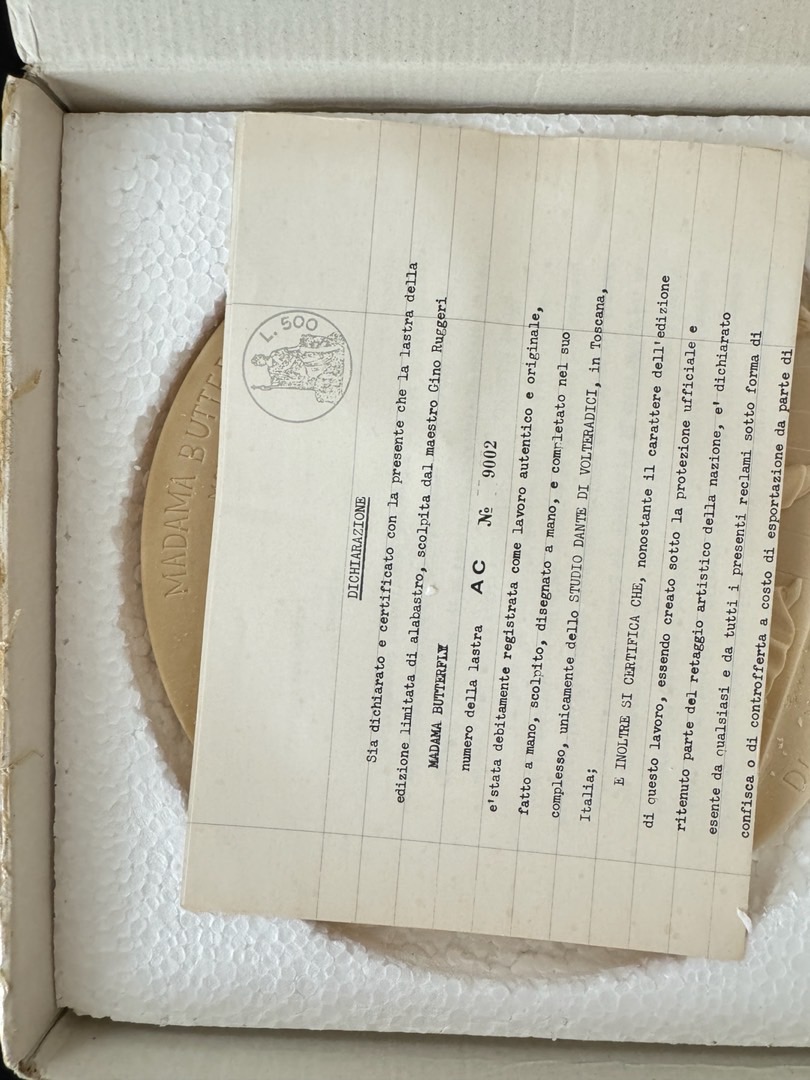 MADAMA BUTTER
L. 500
DICHIARAZIONE
Sia dichiarato e certificato con la presente che la lastra della
edizione limitata di alabastro, scolpita dal maestro Gino Ruggeri
MADAMA BUTTERFLY
numero della lastra AC № 9002
e'stata debitamente registrata come lavoro autentico e originale,
fatto a mano, scolpito, disegnato a mano, e completato nel suo
complesso, unicamente dello STUDIO DANTE DI VOLTERADICI, in Toscana,
Italia;
E INOLTRE SI CERTIFICA CHE, nonostante il carattere dell'edizione
di questo lavoro, essendo creato sotto la protezione ufficiale e
ritenuto parte del retaggio artistico della nazione, e' dichiarato
esente da qualsiasi e da tutti i presenti reclami sotto forma di
confisca o di controfferta a costo di esportazione da parte di